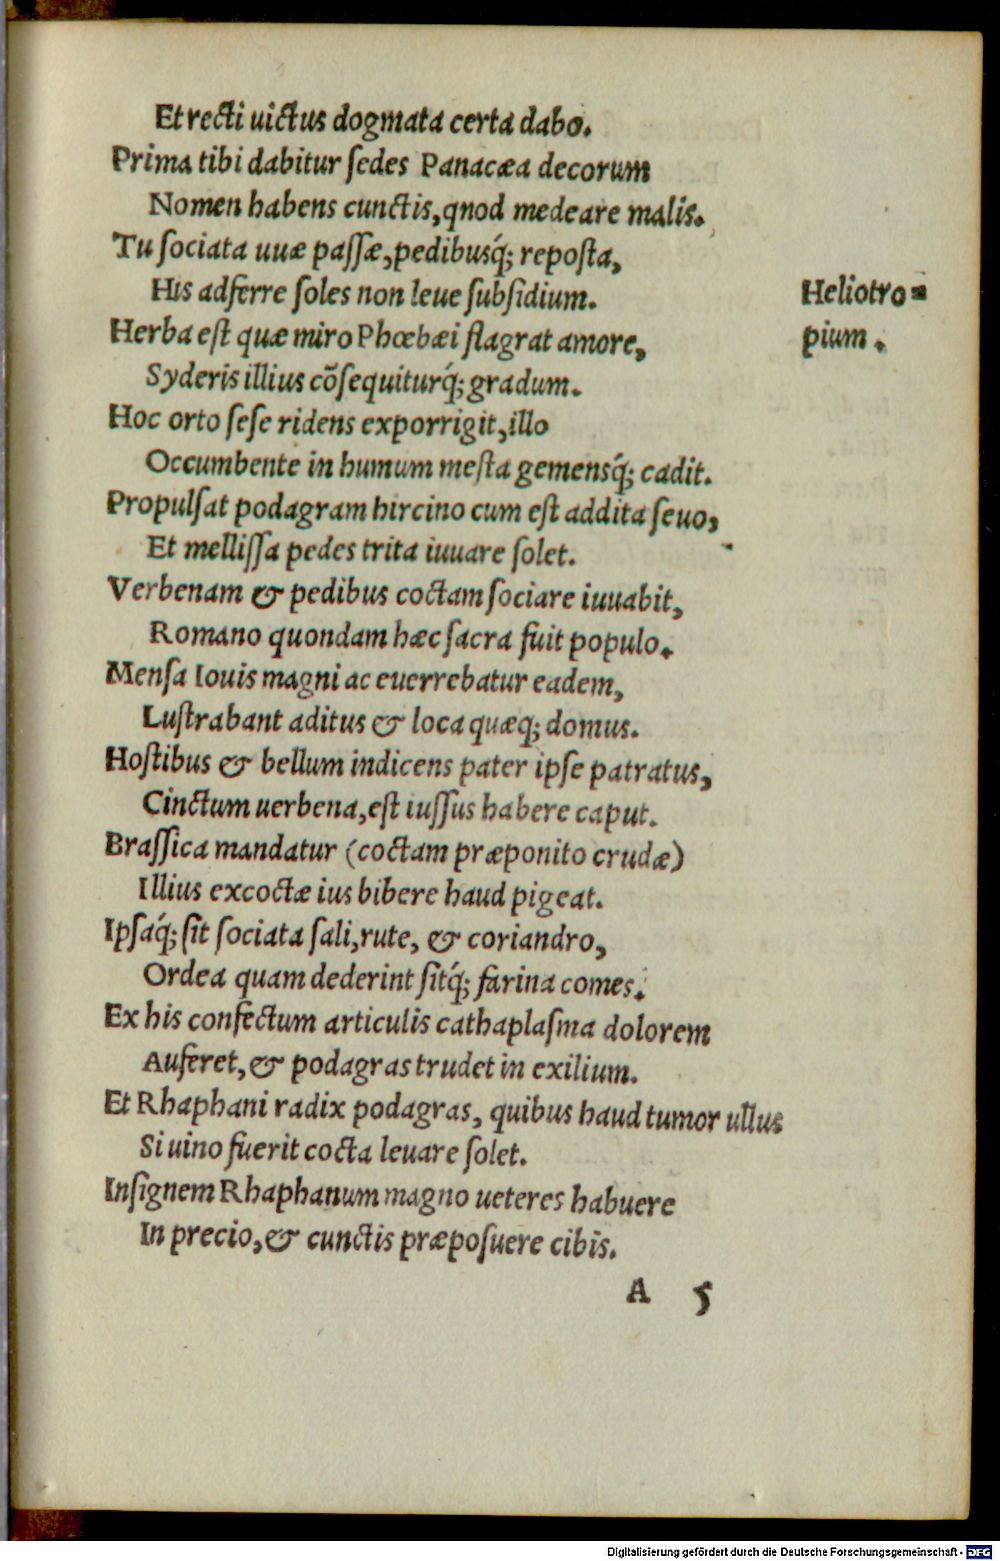 Et recti uictus dogmata certa dabo.
Prima tibi dabitur ſedes Panacæa decorum
Nomen habens cunctis, qnod medeare malis.
Tu ſociata uuæ paſſæ, pedibusq́; repoſta,
His adferre ſoles non leue ſubſidium.
Heliotro=
pium.
Herba eſt quæ miro Phœbæi flagrat amore,
Syderis illius cõſequiturq́; gradum.
Hoc orto ſeſe ridens exporrigit, illo
Occumbente in humum meſta gemensq́; cadit.
Propulſat podagram hircino cum eſt addita ſeuo,
Et melliſſa pedes trita iuuare ſolet.
Verbenam & pedibus coctam ſociare iuuabit,
Romano quondam hæc ſacra fuit populo.
Menſa Iouis magni ac euerrebatur eadem,
Luſtrabant aditus & loca quæq; domus.
Hoſtibus & bellum indicens pater ipſe patratus,
Cinctum uerbena, eſt iuſſus habere caput.
Braſſica mandatur (coctam præponito crudæ)
Illius excoctæ ius bibere haud pigeat.
Ipſaq́; ſit ſociata ſali, rute, & coriandro,
Ordea quam dederint ſitq́; farina comes.
Ex his confectum articulis cathaplaſma dolorem
Auferet, & podagras trudet in exilium.
Et Rhaphani radix podagras, quibus haud tumor ullus
Si uino fuerit cocta leuare ſolet.
Inſignem Rhaphanum magno ueteres habuere
In precio, & cunctis præpoſuere cibis.
A 5
Digitalisierung gefördert durch die Deutsche Forschungsgemeinschaft - DFG